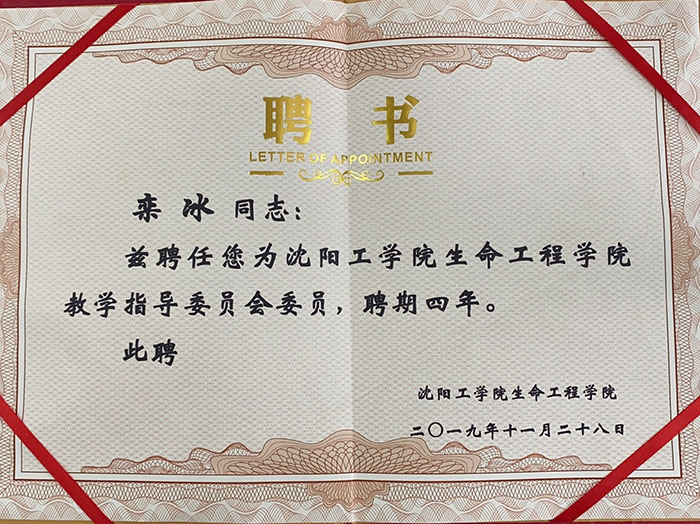 聘 书
LETTER OF APPOINTMENT
栾 冰 同志：
兹聘任您为沈阳工学院生命工程学院
教学指导委员会委员，聘期四年。
此聘
沈阳工学院生命工程学院
二〇一九年十一月二十八日